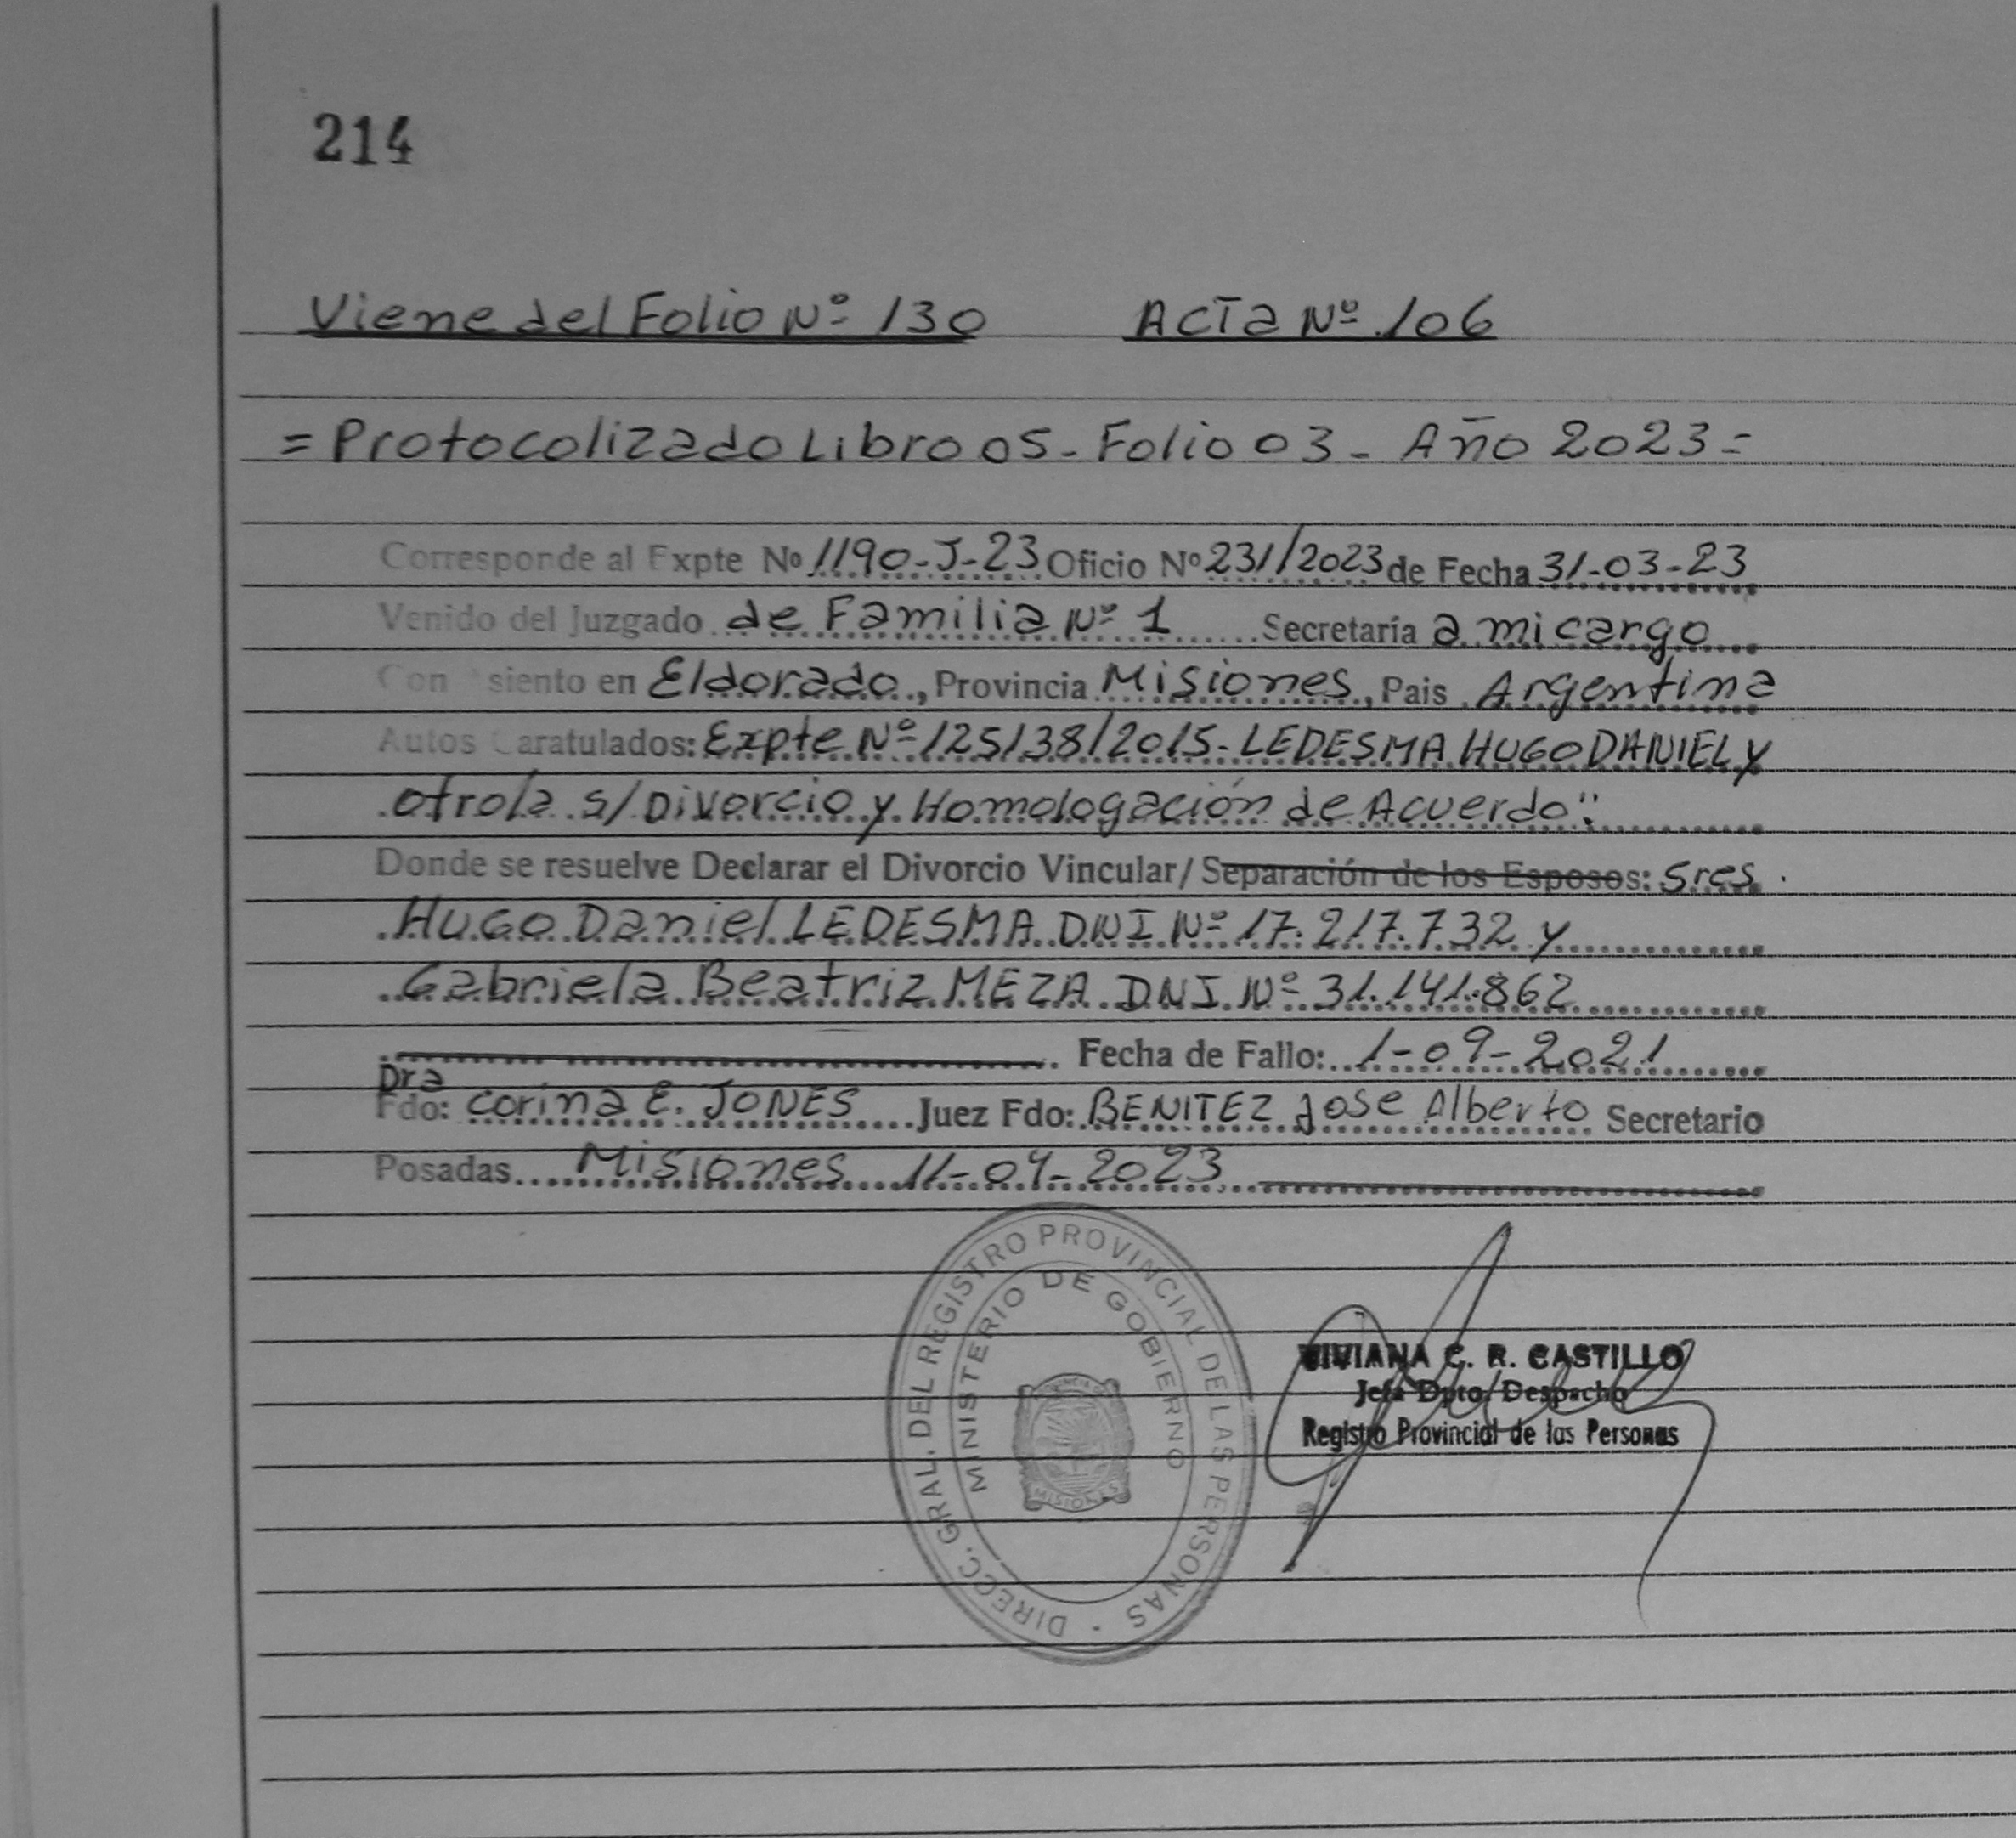 214
Viene del Folio Nº 130 Acta Nº 106
= Protocolizado Libro 05 - Folio 03 - Año 2023 =
Corresponde al Expte Nº 1190-J-23 Oficio Nº 231/2023 de Fecha 31-03-23
Venido del Juzgado de Familia Nº 1 Secretaría a mi cargo
Con Asiento en Eldorado, Provincia Misiones, Pais Argentina
Autos Caratulados: Expte Nº 125138/2015- LEDESMA HUGO DANIEL y
otro/a s/ Divorcio y Homologación de Acuerdo"
Donde se resuelve Declarar el Divorcio Vincular/ Separación de los Esposos: Sres.
Hugo Daniel LEDESMA DNI Nº 17.217.732 y
Gabriela Beatriz MEZA DNI Nº 31.141.862
Fecha de Fallo: 1-09-2021
Dra
Fdo: Corina E. JONES Juez Fdo: BENITEZ Jose Alberto Secretario
Posadas Misiones 11-04-2023
DIRECC. GRAL. DEL REGISTRO PROVINCIAL DE LAS PERSONAS
MINISTERIO DE GOBIERNO
MISIONES
VIVIANA C. R. CASTILLO
Jefa Dpto Despacho
Registro Provincial de las Personas